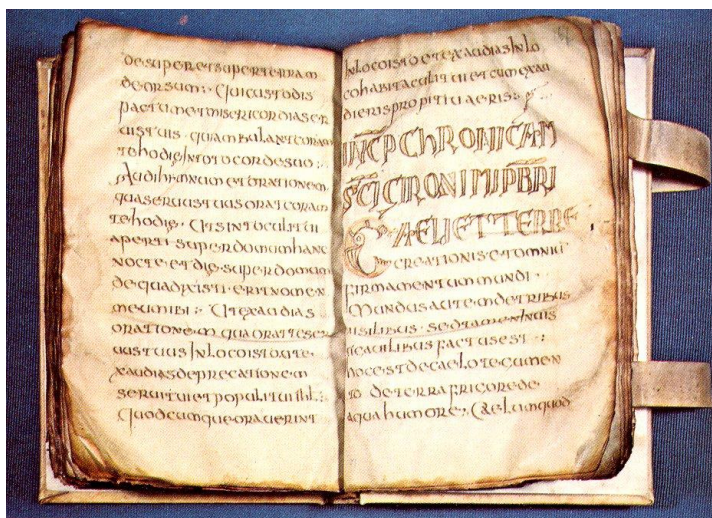 desuper et super terram
deorsum : Qui custodis
pactum et misericordias ser
uis tuis · qui ambulant coram
te hodie in toto corde suo :
Audi hymnum et orationem
qua seruus tuus orat coram
te hodie · Ut sint oculi tui
aperti super domum hanc
nocte et die · super domum
de qua dixisti · erit nomen
meum ibi : Ut exaudias
orationem qua orat te ser
uus tuus in loco isto · ut e
xaudias deprecationem
serui tui et populi tui
Quodcumque orauerint
in loco isto et exaudias in lo
co habitaculi tui et cum exau
dieris propitius eris :
INCP CHRONICAM
SCI GIRONIMI PBRI
CAELI ET TERRE
creationis et omniu
firmamentum mundi ·
Mundus autem de tribus
uisilibus · sed tamen
factus est :
hoc est de caelo tegumen
to de terra frigore de
aqua humore : Caelum quod